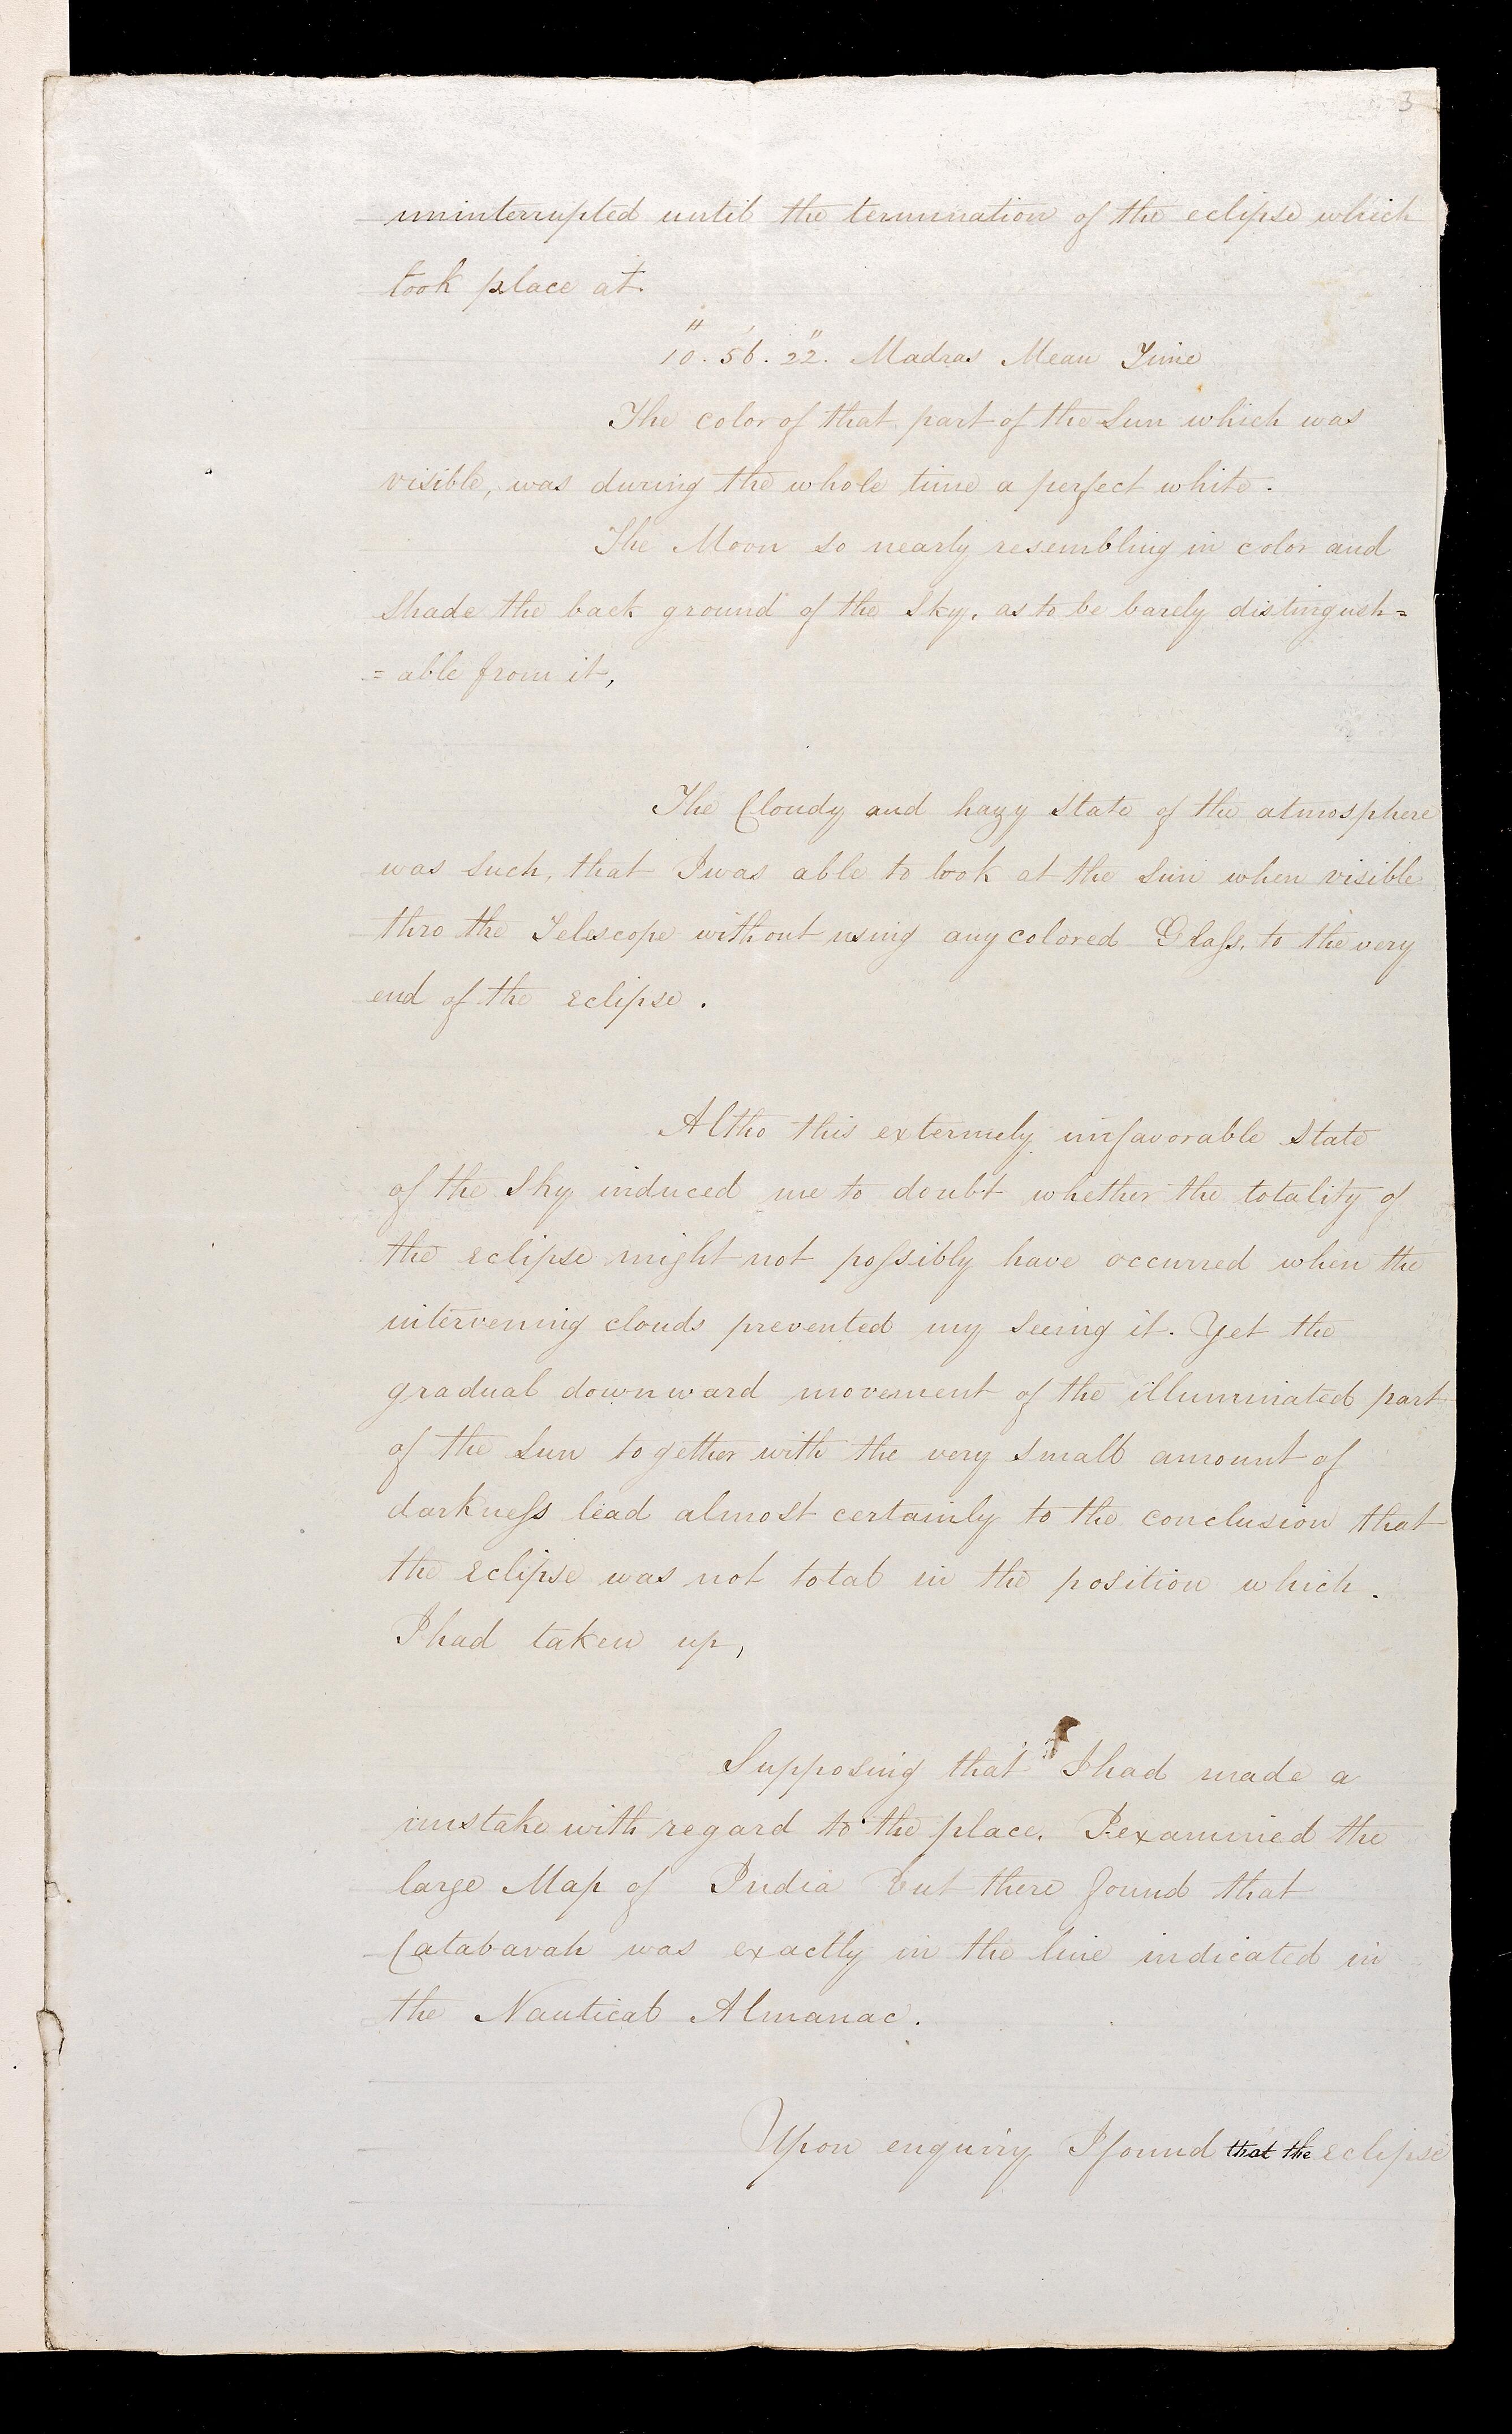 3
uninterrupted until the termination of the eclipse which
took place at.
H ' "
10. 56. 22. Madras Mean Time
The color of that part of the Sun which was
visible, was during the whole time a perfect white.
The Moon so nearly resembling in color and
Shade the back ground of the Sky, as to be barely distingush=
=able from it,
The Cloudy and hazy State of the atmosphere
was such, that I was able to look at the Sun when visible
thro the Telescope without using any colored Glaſs, to the very
end of the Eclipse.
Altho this extermely unfavorable State
of the Sky induced me to doubt whether the totality of
the Eclipse might not poſsibly have occurred when the
intervening clouds prevented my Seeing it. Yet the
gradual downward movement of the illuminated part
of the Sun together with the very Small amount of
darkneſs lead almost certainly to the conclusion that
the Eclipse was not total in the position which.
I had taken up,
Supposing that I had made a
mistake with regard to the place. I examined the
large Map of India but there found that
Catabavah was exactly in the line indicated in
the Nautical Almanac.
Upon enquiry I found that the Eclipse